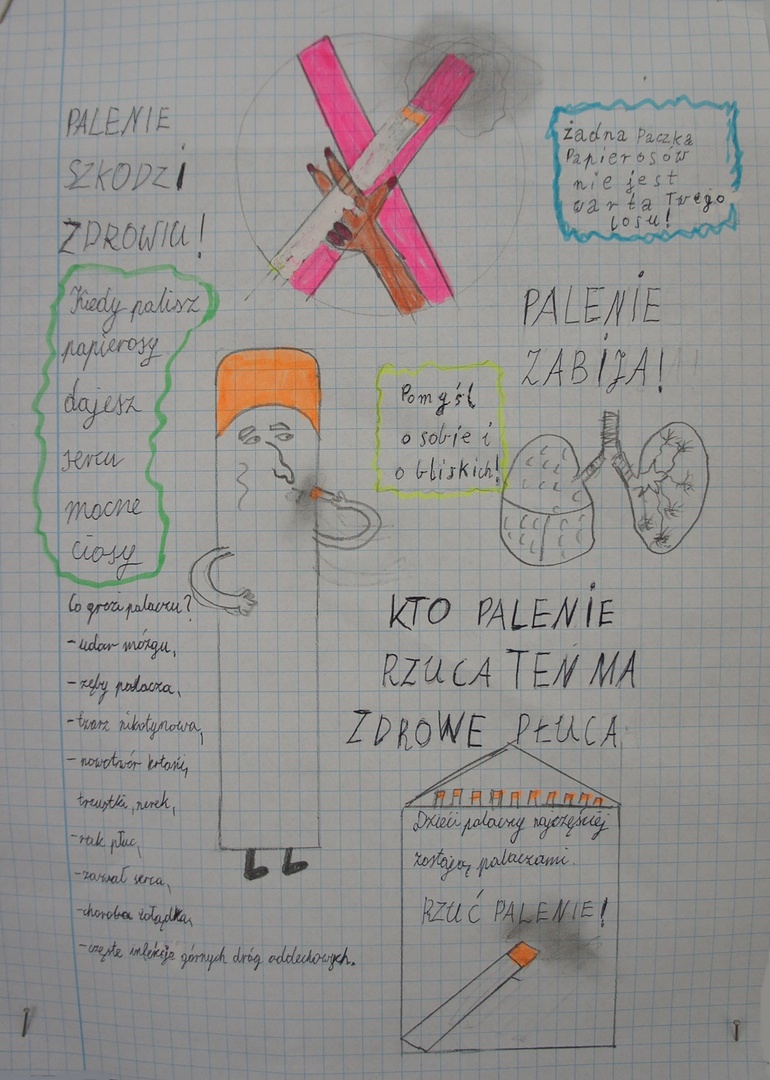 PALENIE
SZKODZI
ZDROWIU!
żadna Paczka
Papierosów
nie jest
warta Twego
losu!
Kiedy palisz
papierosy
dajesz
sercu
mocne
ciosy
PALENIE
ZABIJA!
Pomyśl
o sobie i
o bliskich!
Co grozi palaczu?
- udar mózgu,
- zęby palacza,
- twarz nikotynowa,
- nowotwór krtani,
trzustki, nerek,
- rak płuc,
- zawał serca,
- choroba żołądka,
- częste infekcje górnych dróg oddechowych.
KTO PALENIE
RZUCA TEN MA
ZDROWE PŁUCA
Dzieci palaczy najczęściej
zostają palaczami.
RZUĆ PALENIE!